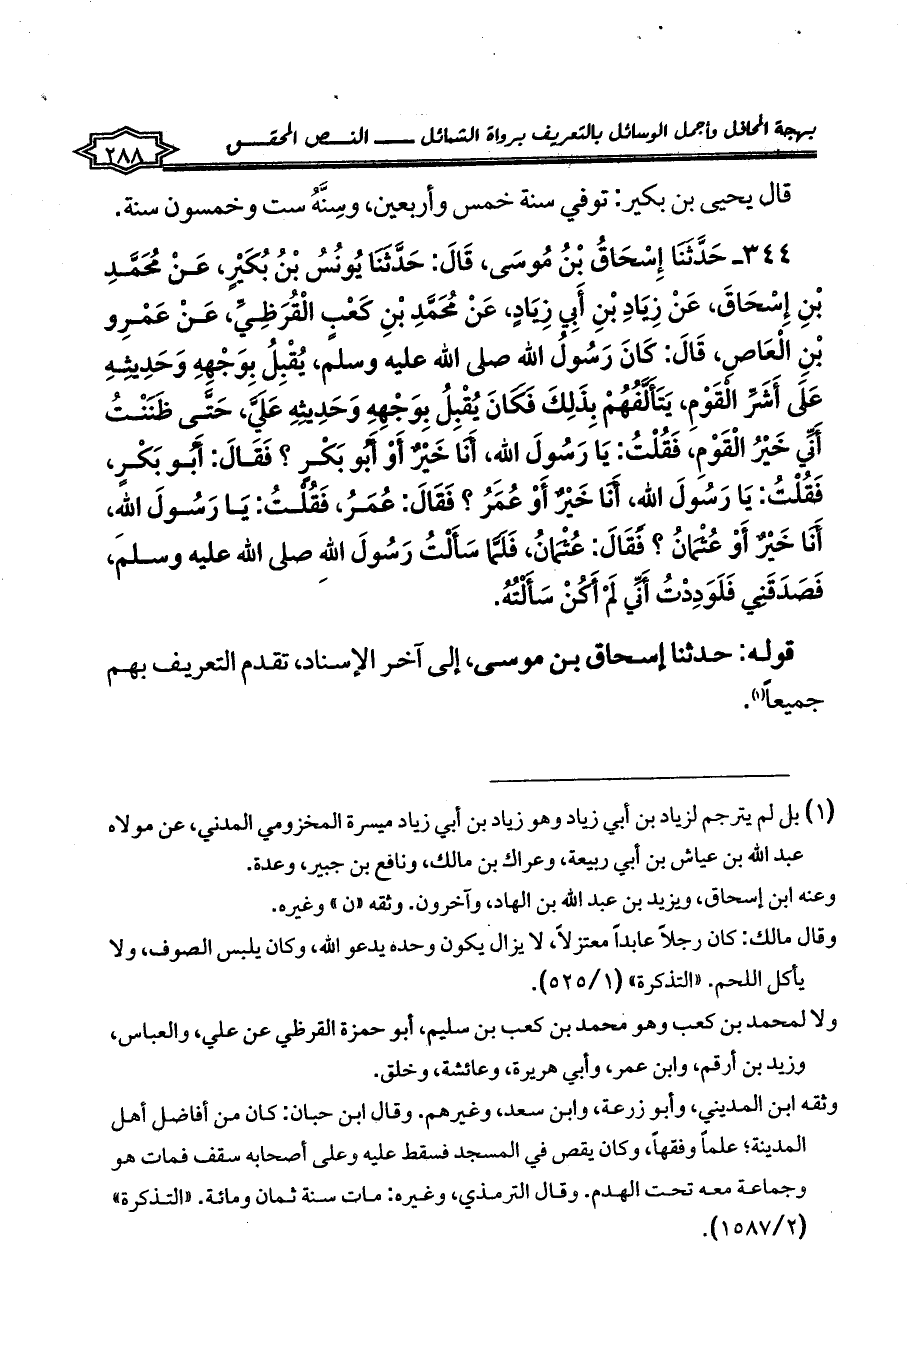 بهجة المحافل وأجمل الوسائل بالتعريف برواة الشمائل ـــ النـص المحقـق
٢٨٨
قال يحيى بن بكير: توفي سنة خمس وأربعين، وسِنَّهُ ست وخمسون سنة.
٣٤٤ـ حَدَّثَنَا إِسْحَاقُ بْنُ مُوسَى، قَالَ: حَدَّثَنَا يُونُسُ بْنُ بُكَيْرٍ، عَـنْ مُحَمَّـدِ
بْنِ إِسْحَاقَ، عَنْ زِيَادِ بْنِ أَبِي زِيَادٍ، عَنْ مُحَمَّدِ بْنِ كَعْبٍ الْقُرَظِيِّ، عَـنْ عَمْـرِو
بْنِ الْعَاصِ، قَالَ: كَانَ رَسُولُ الله صلى الله عليه وسلم، يُقْبِلُ بِوَجْهِهِ وَحَدِيثِـهِ
عَلَى أَشَرِّ الْقَوْمِ، يَتَأَلَّفُهُمْ بِذَلِكَ فَكَانَ يُقْبِلُ بِوَجْهِهِ وَحَدِيثِهِ عَلَيَّ، حَتَّى ظَنَنْتُ
أَنِّي خَيْرُ الْقَوْمِ، فَقُلْتُ: يَا رَسُولَ الله، أَنَا خَيْرٌ أَوْ أَبُو بَكْرٍ ؟ فَقَالَ: أَبُـو بَكْـرٍ،
فَقُلْتُ: يَا رَسُولَ الله، أَنَا خَيْرٌ أَوْ عُمَرُ ؟ فَقَالَ: عُمَرُ، فَقُلْـتُ: يَـا رَسُـولَ الله،
أَنَا خَيْرٌ أَوْ عُثْمَانُ ؟ فَقَالَ: عُثْمَانُ، فَلَمَّا سَأَلْتُ رَسُولَ الله صلى الله عليه وسـلم،
فَصَدَقَنِي فَلَوَدِدْتُ أَنِّي لَمْ أَكُنْ سَأَلْتُهُ.
قولـه: حـدثنا إسـحاق بـن موسـى، إلى آخـر الإسناد، تقـدم التعريـف بهـم
جميعاً(١).
(١) بل لم يترجم لزياد بن أبي زياد وهو زياد بن أبي زياد ميسرة المخزومي المدني، عن مولاه
عبد الله بن عياش بن أبي ربيعة، وعراك بن مالك، ونافع بن جبير، وعدة.
وعنه ابن إسحاق، ويزيد بن عبد الله بن الهاد، وآخرون. وثقه «ن» وغيره.
وقال مالك: كان رجلاً عابداً معتزلاً، لا يزال يكون وحده يدعو الله، وكان يلبس الصوف، ولا
يأكل اللحم. «التذكرة» (١/ ٥٢٥).
ولا لمحمد بن كعب وهو محمد بن كعب بن سليم، أبو حمزة القرظي عن علي، والعباس،
وزيد بن أرقم، وابن عمر، وأبي هريرة، وعائشة، وخلق.
وثقه ابن المديني، وأبو زرعة، وابن سعد، وغيرهم. وقال ابن حبان: كان من أفاضل أهل
المدينة؛ علماً وفقهاً، وكان يقص في المسجد فسقط عليه وعلى أصحابه سقف فمات هو
وجماعة معه تحت الهدم. وقال الترمذي، وغيره: مات سنة ثمان ومائة. «التذكرة»
(٢/ ١٥٨٧).